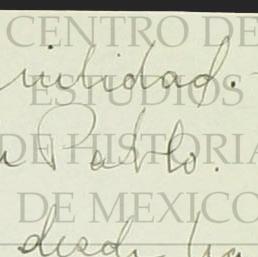 CENTRO DE
ESTUDIOS
DE HISTORIA
DE MEXICO
Pablo.
desde